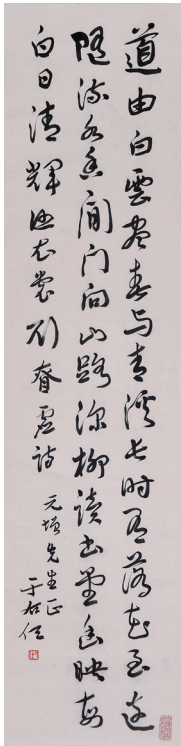 道由白雲盡春与青溪長時有落花至遠
隨流水香閒門向山路深柳讀書堂幽映每
白日清輝照衣裳劉眘虛詩
元先生正
于右任